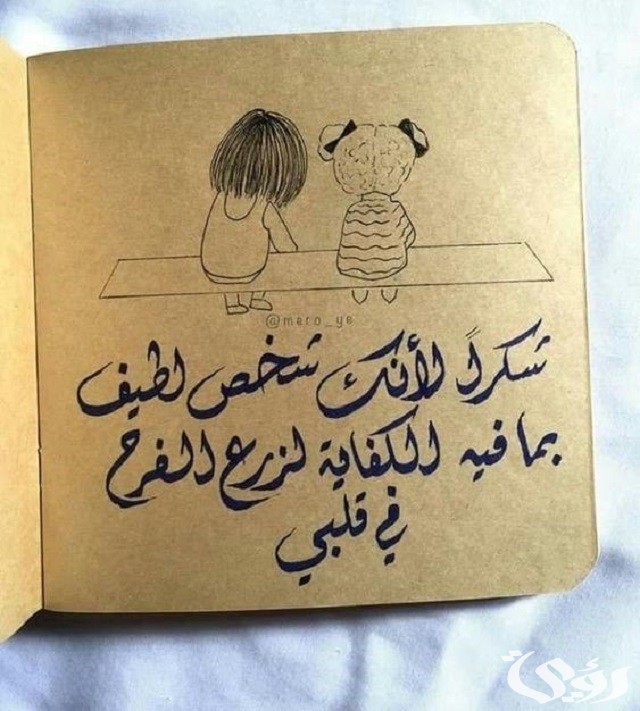 @mero_ye
شكراً لأنك شخص لطيف
بما فيه الكفاية لزرع الفرح
في قلبي
رؤى